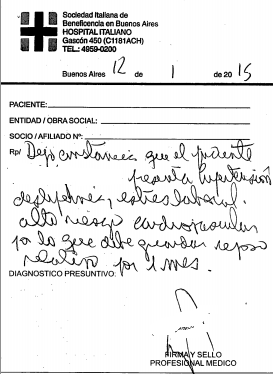 Sociedad Italiana de
Beneficencia en Buenos Aires
HOSPITAL ITALIANO
Gascón 450 (C1181ACH)
TEL.: 4959-0200
Buenos Aires 12 de 1 de 2015
PACIENTE:
ENTIDAD / OBRA SOCIAL:
SOCIO / AFILIADO Nº:
Rp/ Dejo constancia que el paciente
presenta hipertensión
dislipemia, estres laboral.
alto riesgo cardiovascular
por lo que debe guardar reposo
relativo por 1 mes.
DIAGNOSTICO PRESUNTIVO:
FIRMA Y SELLO
PROFESIONAL MEDICO